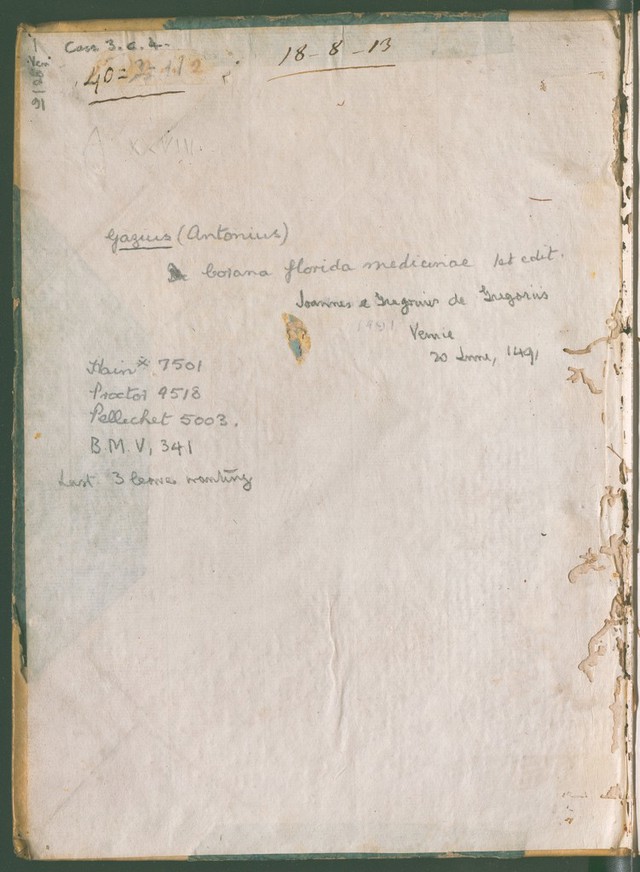 Case 3. c. 4.
18-8-13
40=
XXVIII.
Gazius (Antonius)
Corona florida medicinae 1st edit.
Joannes e Gregorius de Gregoriis
1491
Venice
20 June, 1491
Hain* 7501
Proctor 9518
Pellechet 5003.
B.M. V, 341
Last 3 leaves wanting